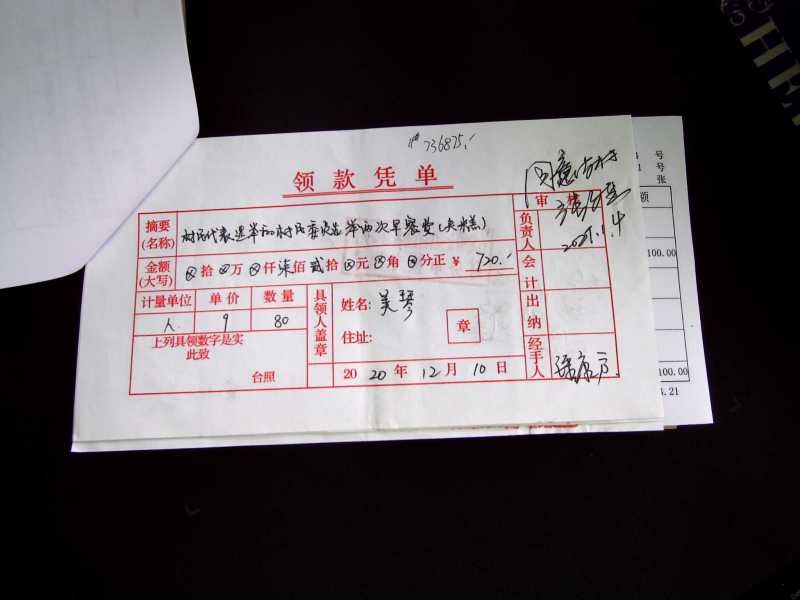 736875.-
领款凭单
审核
同意
2021.1.4
摘要(名称) 村民代表选举和村民委员选举两次早餐费(夹糕)
金额(大写) ⊗拾⊗万⊗仟柒佰贰拾⊗元⊗角⊗分正 ¥ 720.-
计量单位 单价 数量
人 9 80
上列具领数字是实
此致
台照
具领人盖章
姓名: 美琴
住址:
章
2020年12月10日
负责人
会计
出纳
经手人
号
号
张
额
100.00
100.00
.21
HE